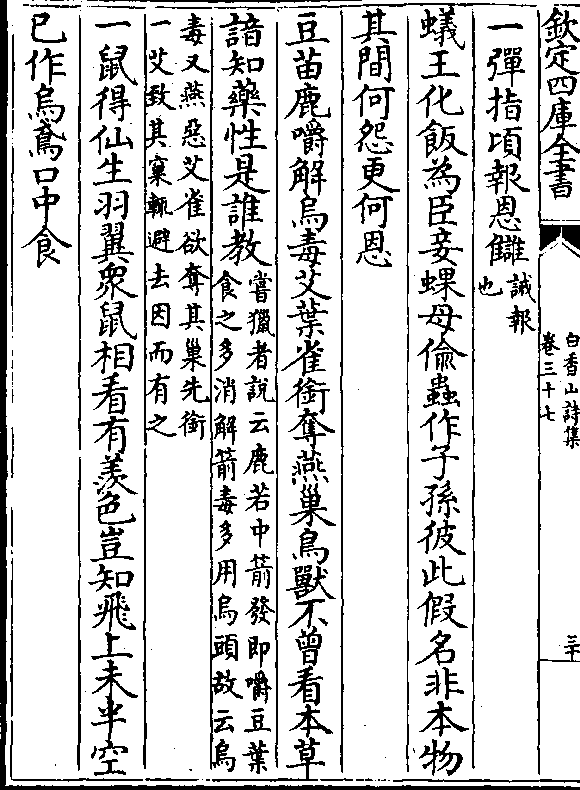 欽定四庫全書
白香山詩集
卷三十七
三十
一彈指頃報恩讎誡報
也
蟻王化飯為臣妾蜾母偷蟲作子孫彼此假名非本物
其間何怨更何恩
豆苗鹿嚼解烏毒艾葉雀銜奪燕巢鳥獸不曾看本草
諳知藥性是誰教嘗獵者說云鹿若中箭發即嚼豆葉
食之多消解箭毒多用烏頭故云烏
毒又燕惡艾雀欲奪其巢先銜
一艾致其窠輒避去因而有之
一鼠得仙生羽翼衆鼠相看有羨色豈知飛上未半空
已作烏鳶口中食